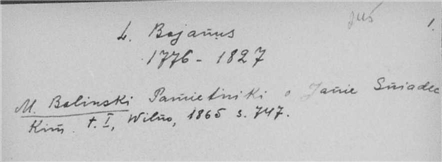 już 1.
L. Bojanus
1776 - 1827
M. Balinski Pamietniki o Janie Sniadec
Kim. t. I, Wilno, 1865 s. 747.